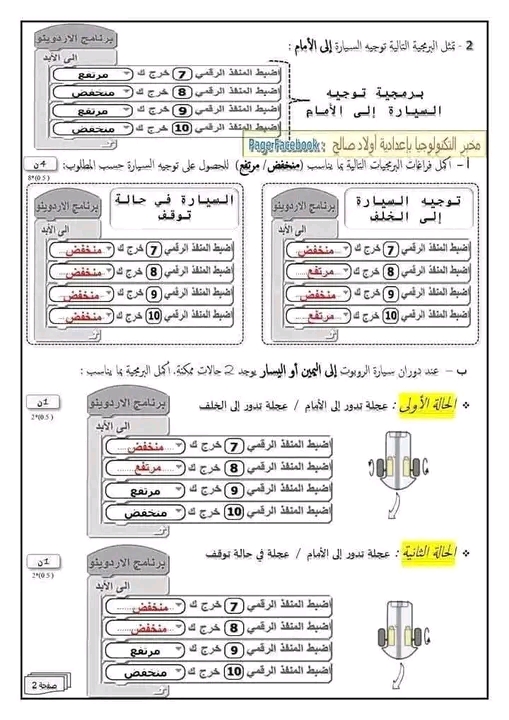 برنامج الاردوينو
الى الأبد
2 - تمثل البرمجية التالية توجيه السيارة إلى الأمام :
اضبط المنفذ الرقمي 7 خرج ك مرتفع
اضبط المنفذ الرقمي 8 خرج ك منخفض
اضبط المنفذ الرقمي 9 خرج ك مرتفع
اضبط المنفذ الرقمي 10 خرج ك منخفض
برمجية توجيه
السيارة إلى الأمام
مخبر التكنولوجيا بإعدادية أولاد صالح : PagerFacebook
أ - اكمل فراغات البرمجيات التالية بما يناسب (منخفض/ مرتفع) للحصول على توجيه السيارة حسب المطلوب:
4ن
8*(0.5)
توجيه السيارة
إلى الخلف
برنامج الاردوينو
الى الأبد
اضبط المنفذ الرقمي 7 خرج ك منخفض
اضبط المنفذ الرقمي 8 خرج ك مرتفع
اضبط المنفذ الرقمي 9 خرج ك منخفض
اضبط المنفذ الرقمي 10 خرج ك مرتفع
السيارة في حالة
توقف
برنامج الاردوينو
الى الأبد
اضبط المنفذ الرقمي 7 خرج ك منخفض
اضبط المنفذ الرقمي 8 خرج ك منخفض
اضبط المنفذ الرقمي 9 خرج ك منخفض
اضبط المنفذ الرقمي 10 خرج ك منخفض
ب – عند دوران سيارة الروبوت إلى اليمين أو اليسار يوجد 2 حالات ممكنة. اكمل البرمجية بما يناسب :
الحالة الأولى : عجلة تدور إلى الأمام / عجلة تدور إلى الخلف
1ن
2*(0.5)
برنامج الاردوينو
الى الأبد
اضبط المنفذ الرقمي 7 خرج ك منخفض
اضبط المنفذ الرقمي 8 خرج ك مرتفع
اضبط المنفذ الرقمي 9 خرج ك مرتفع
اضبط المنفذ الرقمي 10 خرج ك منخفض
الحالة الثانية : عجلة تدور إلى الأمام / عجلة في حالة توقف
1ن
2*(0.5)
برنامج الاردوينو
الى الأبد
اضبط المنفذ الرقمي 7 خرج ك منخفض
اضبط المنفذ الرقمي 8 خرج ك منخفض
اضبط المنفذ الرقمي 9 خرج ك مرتفع
اضبط المنفذ الرقمي 10 خرج ك منخفض
صفحة 2